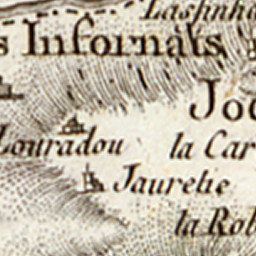 Laspinha
s Infornáts
Jo
Louradou
la Car
Jaurelie
la Rob